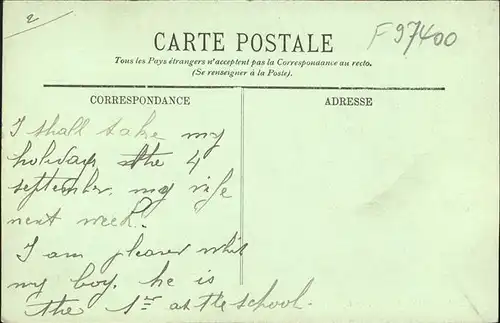 2
F 97400
CARTE POSTALE
Tous les Pays étrangers n'acceptent pas la Correspondance au recto.
(Se renseigner à la Poste).
CORRESPONDANCE
ADRESSE
I shall take my
holidays the 4
september. my wife
next week.
I am pleased whit
my boy. he is
the 1er at the school.